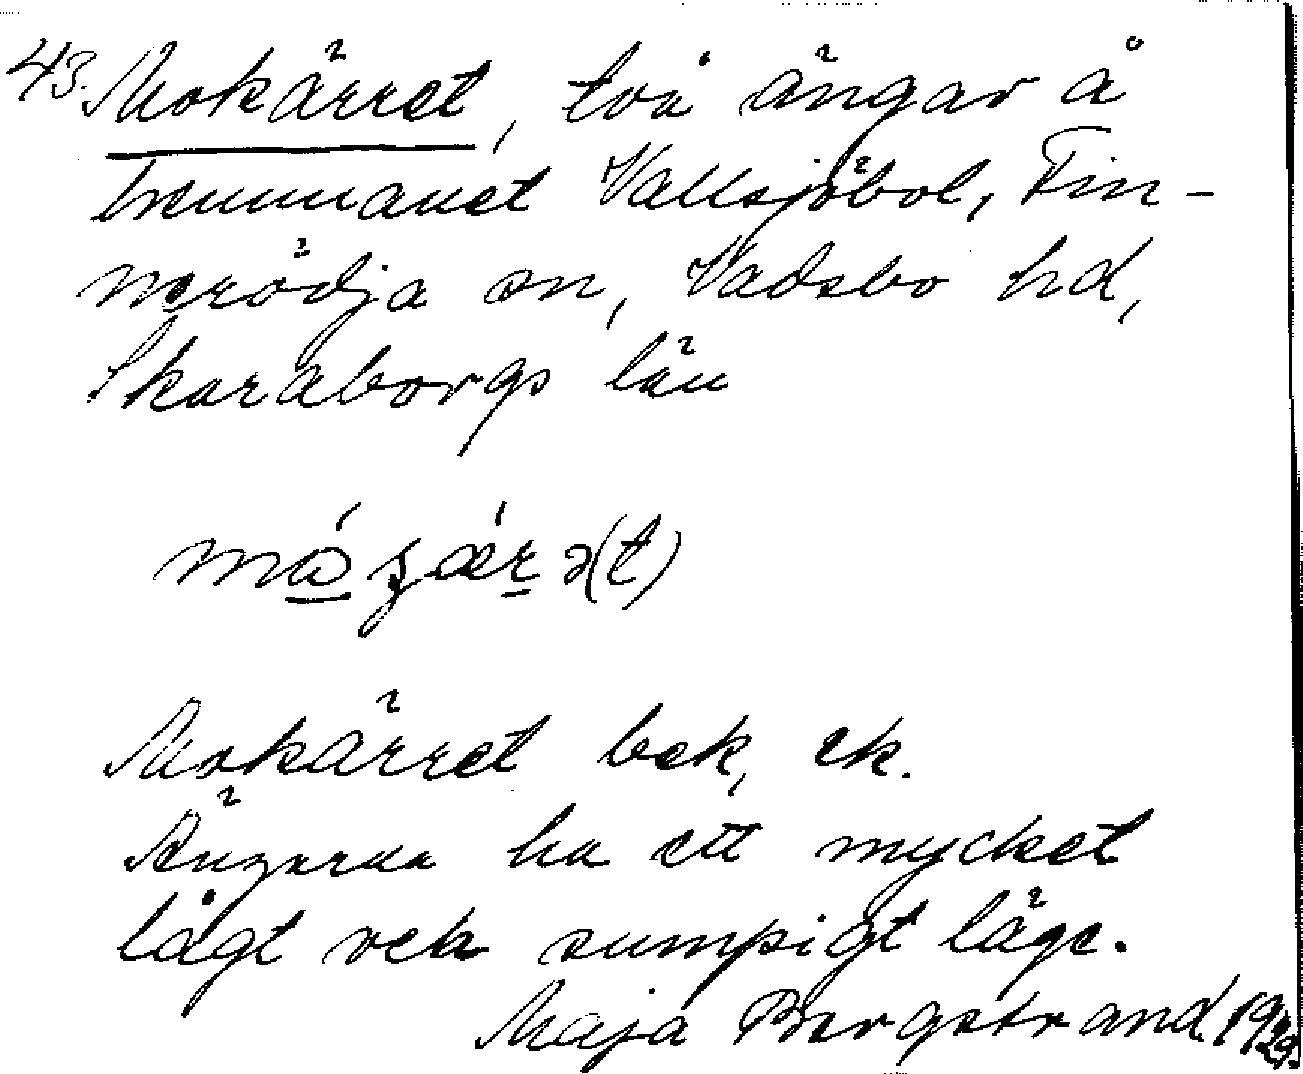 43. Mokärret, två ängar å
hemmanet Vallsjöbol, Fin-
nerödja sn, Vadsbo hd,
Skaraborgs län
Mokärret bek, ek.
Ängarna ha ett mycket
lågt och sumpigt läge.
Maja Bergstrand 1929.